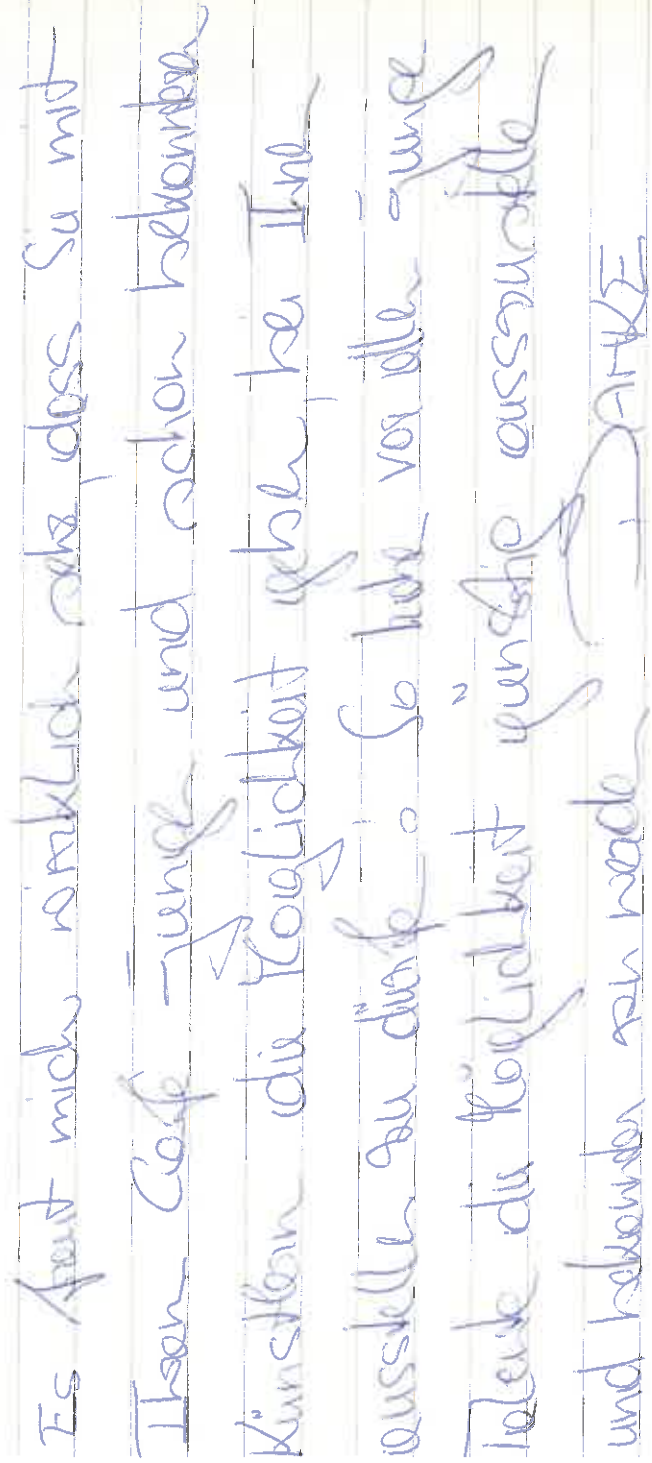 Es freut mich wirklich sehr, dass Sie mit
Ihrem Cafe jungen und schon bekannten
Künstlern die Möglichkeit geben, bei Ihnen
ausstellen zu dürfen. So haben vor allem junge
Talente die Möglichkeit, günstig auszustellen
und bekannter zu werden DANKE